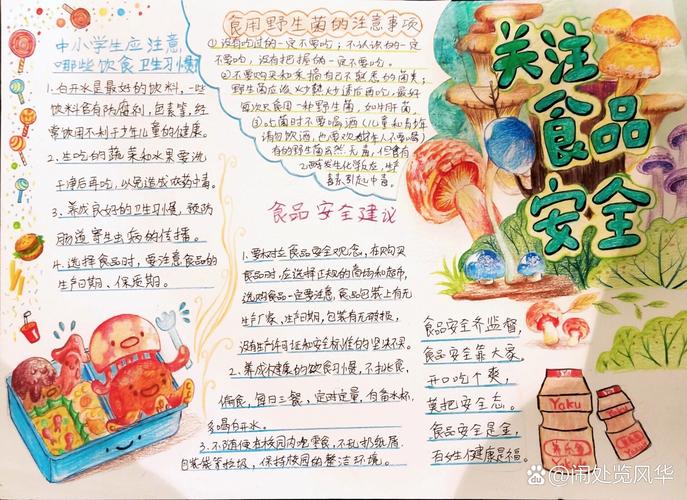 关注
食品
安全
中小学生应注意
哪些饮食卫生习惯
1.白开水是最好的饮料,一些
饮料含有防腐剂,色素等,经
常饮用不利于少年儿童的健康。
2.生吃的蔬菜和水果要洗
干净后再吃,以免造成农药中毒。
3.养成良好的卫生习惯,预防
肠道寄生虫病的传播。
4.选择食品时,要注意食品的
生产日期、保质期。
食用野生菌的注意事项
①没有吃过的一定不要吃;不认识的一定
不要吃,没有把握的一定不要吃。
②不要购买和采摘自己不熟悉的菌类;
野生菌应该炒熟炒透后再吃,最好
每次只食用一种野生菌,如牛肝菌
③吃菌时不要喝酒(儿童和青少年
请勿饮酒,也要劝
有的野生菌虽然无毒,但含有
生化学反应,生产
毒素引起中毒。
食品安全建议
1.要树立食品安全观念,在购买
食品时,应选择正规的商场和超市,
选购食品一定要注意,食品包装上有无
生产厂家、生产日期,包装有无破损,
没有生产许可证和安全标准的坚决不买。
2.养成健康的饮食习惯,不挑食,
偏食,每日三餐,定时定量,自备水杯,
多喝白开水。
3.不随便在校园内吃零食,不乱扔纸屑
袋等垃圾,保持校园的整洁环境。
食品安全齐监督,
食品安全靠大家。
开口吃个爽,
莫把安全忘。
食品安全是金,
有生健康是福。
Yaku
Yaku
养乐多
@闲处览风华